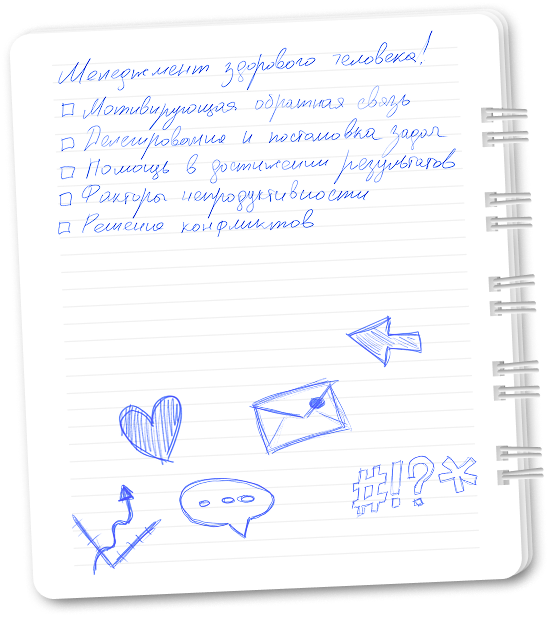 Менеджмент здорового человека!
Мотивирующая обратная связь
Делегирование и постановка задач
Помощь в достижении результатов
Факторы непродуктивности
Решение конфликтов
#!?*